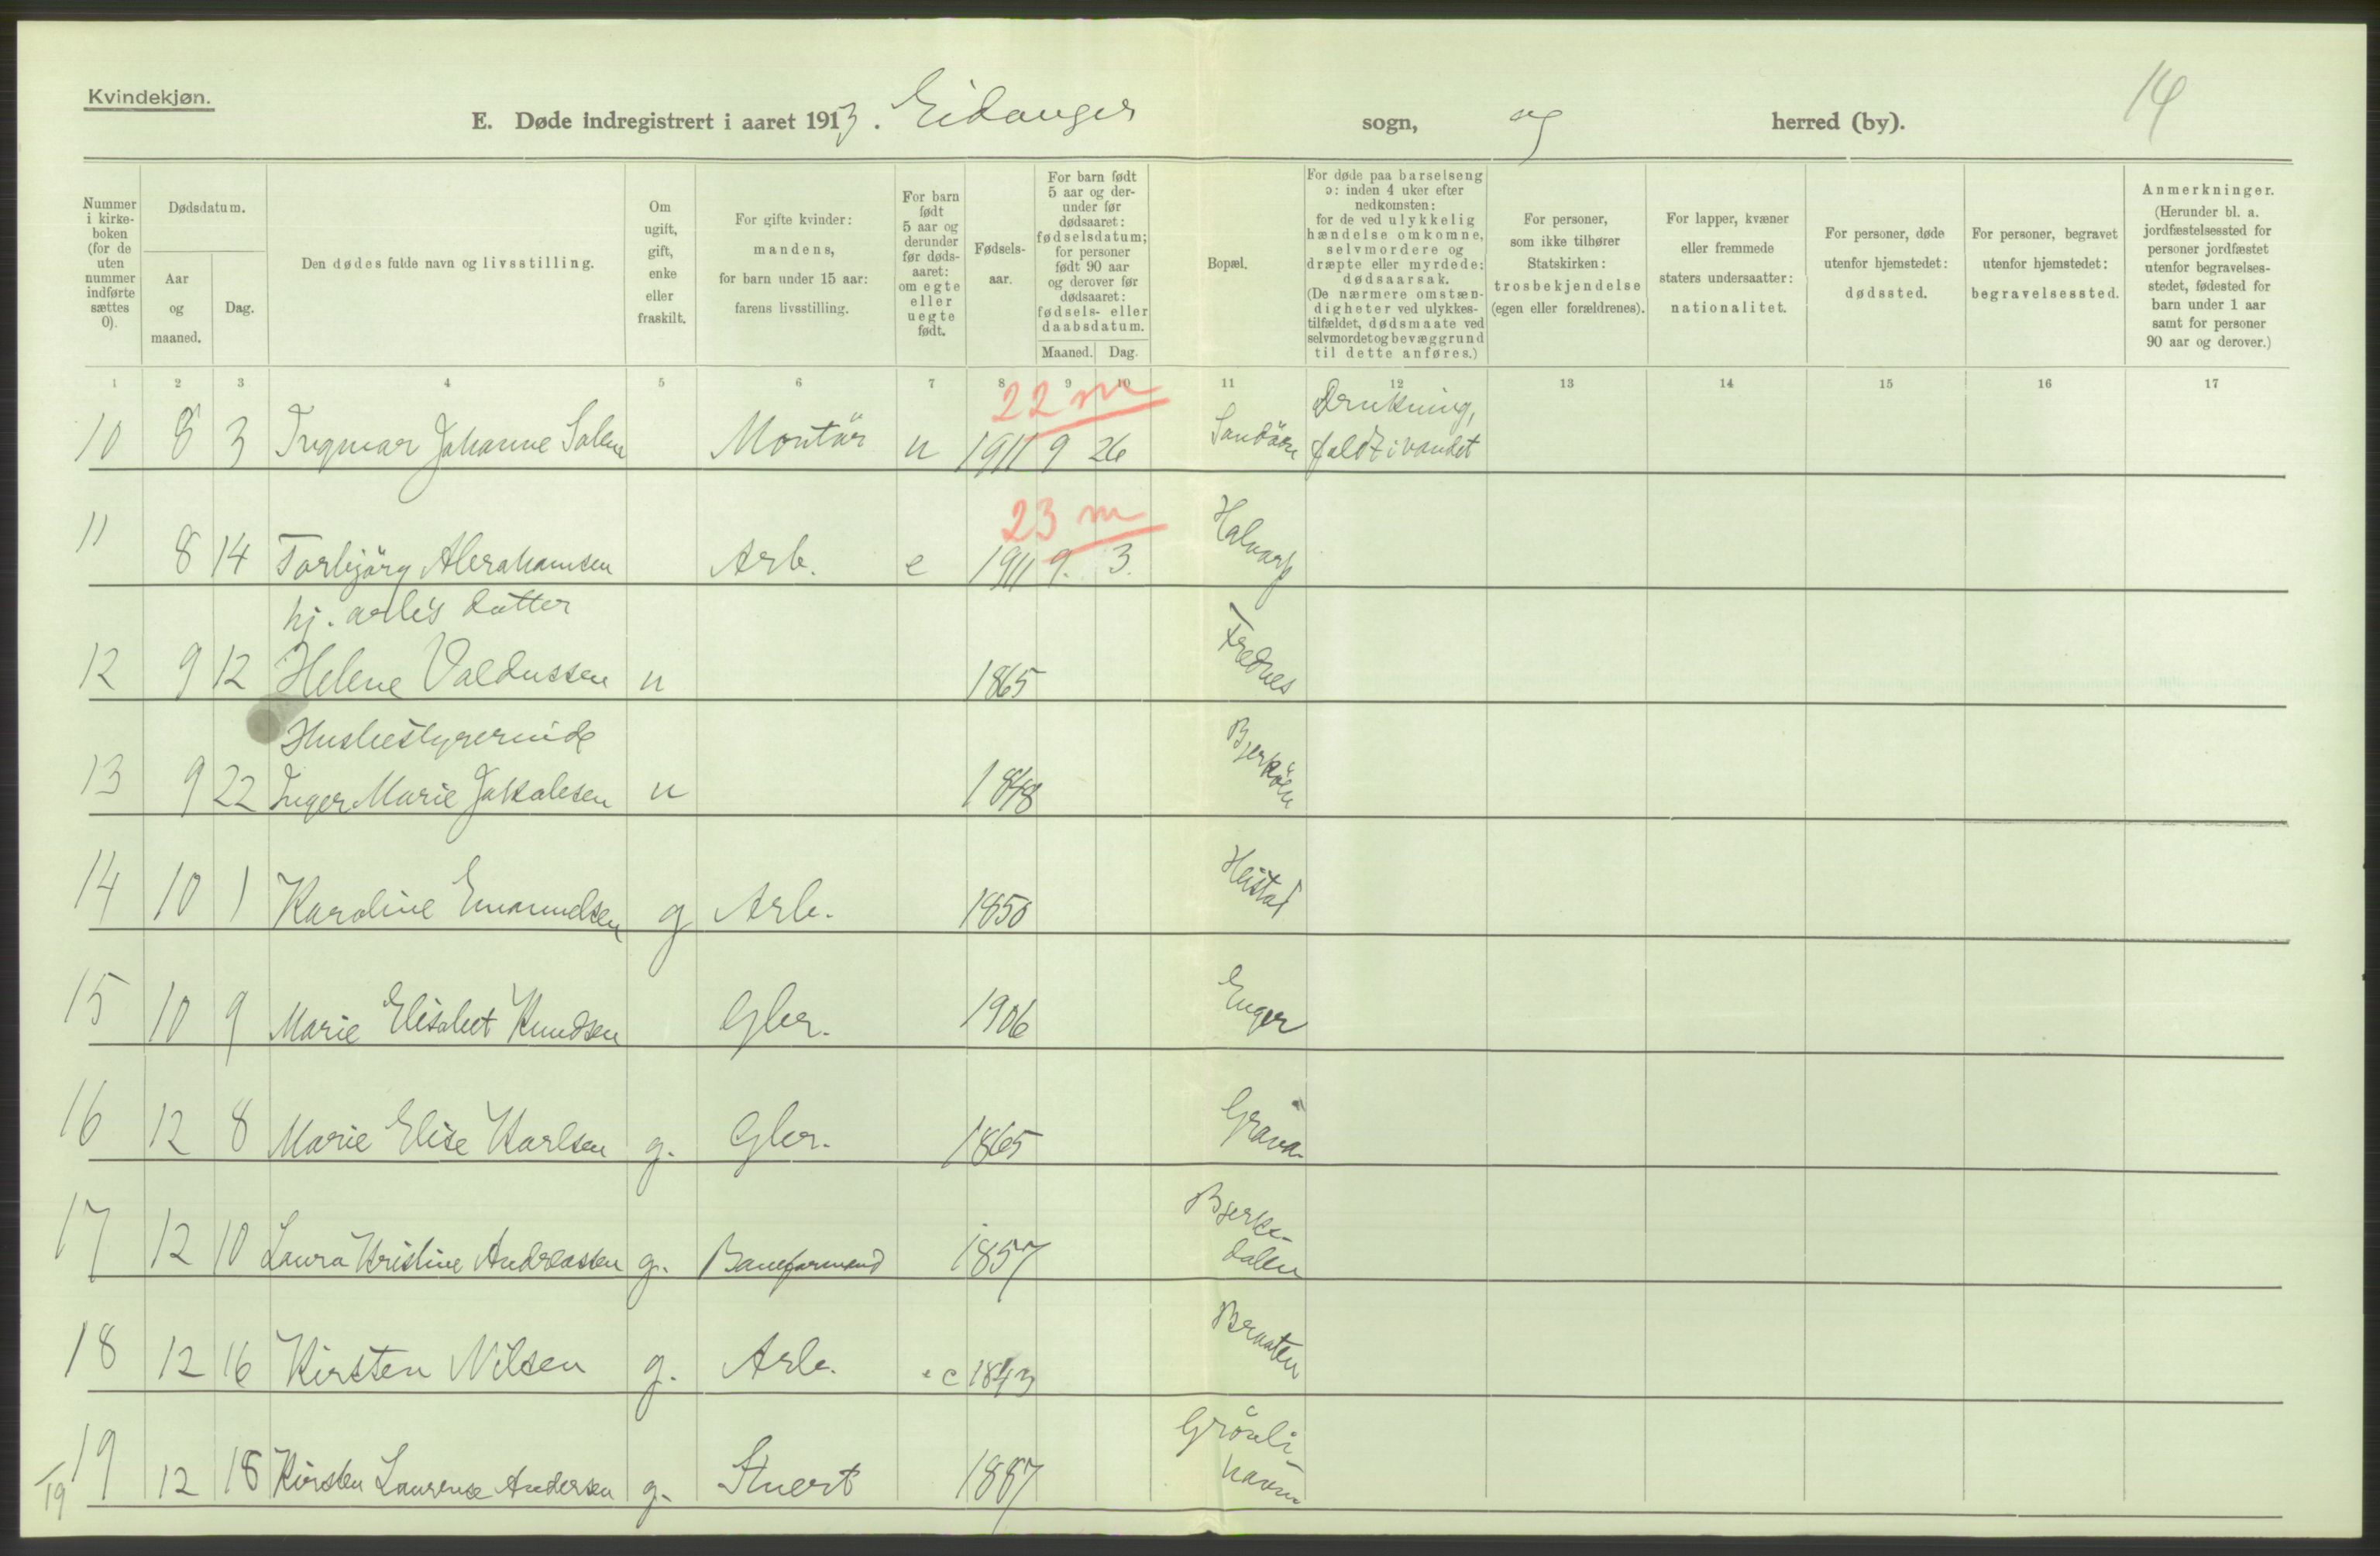 Kvindekjøn.
14
E. Døde indregistrert i aaret 1913. Eidanger sogn, og herred (by).
Nummer i kirke-boken (for de uten nummer indførte sættes 0).
Dødsdatum.
Aar og maaned.
Dag.
Den dødes fulde navn og livsstilling.
Om ugift, gift, enke eller fraskilt.
For gifte kvinder: mandens, for barn under 15 aar: farens livsstilling.
For barn født 5 aar og derunder før døds-aaret: om egte eller uegte født.
Fødsels-aar.
For barn født 5 aar og der-under før dødsaaret: fødselsdatum; for personer født 90 aar og derover før dødsaaret: fødsels- eller daabsdatum.
Maaned. Dag.
Bopæl.
For døde paa barselseng ɔ: inden 4 uker efter nedkomsten: for de ved ulykkelig hændelse omkomne, selvmordere og dræpte eller myrdede: dødsaarsak. (De nærmere omstæn-digheter ved ulykkes-tilfældet, dødsmaate ved selvmordet og bevæggrund til dette anføres.)
For personer, som ikke tilhører Statskirken: trosbekjendelse (egen eller forældrenes).
For lapper, kvæner eller fremmede staters undersaatter: nationalitet.
For personer, døde utenfor hjemstedet: dødssted.
For personer, begravet utenfor hjemstedet: begravelsessted.
Anmerkninger. (Herunder bl. a. jordfæstelsessted for personer jordfæstet utenfor begravelses-stedet, fødested for barn under 1 aar samt for personer 90 aar og derover.)
1 2 3 4 5 6 7 8 9 10 11 12 13 14 15 16 17
22 m
Drukning,
10 8 3 Ingmar Johanne Salen Montör u 1911 9 26 Sandöen faldt i vandet
23 m
11 8 14 Torbjörg Abrahamsen Arb. e 1911 9. 3. Halvarp
hj. arb's datter
12 9 12 Helene Valdussen u 1865 Frednes
Husbestyrerinde
13 9 22 Inger Marie Jakobsen u 1848 Bjerköen
14 10 1 Karoline Emanuelsen g Arb. 1850 Heistad
15 10 9 Marie Elisabet Knudsen Gbr. 1906 Enger
16 12 8 Marie Elise Karlsen g. Gbr. 1865 Grava
17 12 10 Laura Kristine Andreassen g. Baneformand 1857 Bjerke-
dalen
18 12 16 Kirsten Nilsen g. Arb. 1843 Braaten
19 12 18 Kirsten Laurense Andersen g. Stuert 1887 Grönli
havn
19